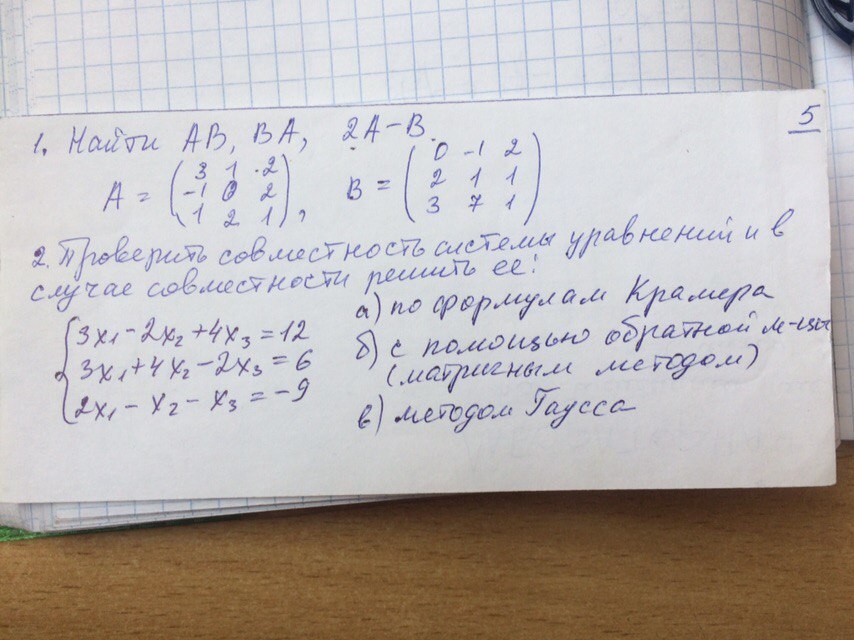 5
1. Найти AB, BA, 2A-B.
A = (3 1 2
-1 0 2
1 2 1), B = (0 -1 2
2 1 1
3 7 1)
2. Проверить совместность системы уравнений и в
случае совместности решить ее:
{3x₁-2x₂+4x₃=12
3x₁+4x₂-2x₃=6
2x₁-x₂-x₃=-9
а) по формулам Крамера
б) с помощью обратной м-цы
(матричным методом)
в) методом Гаусса